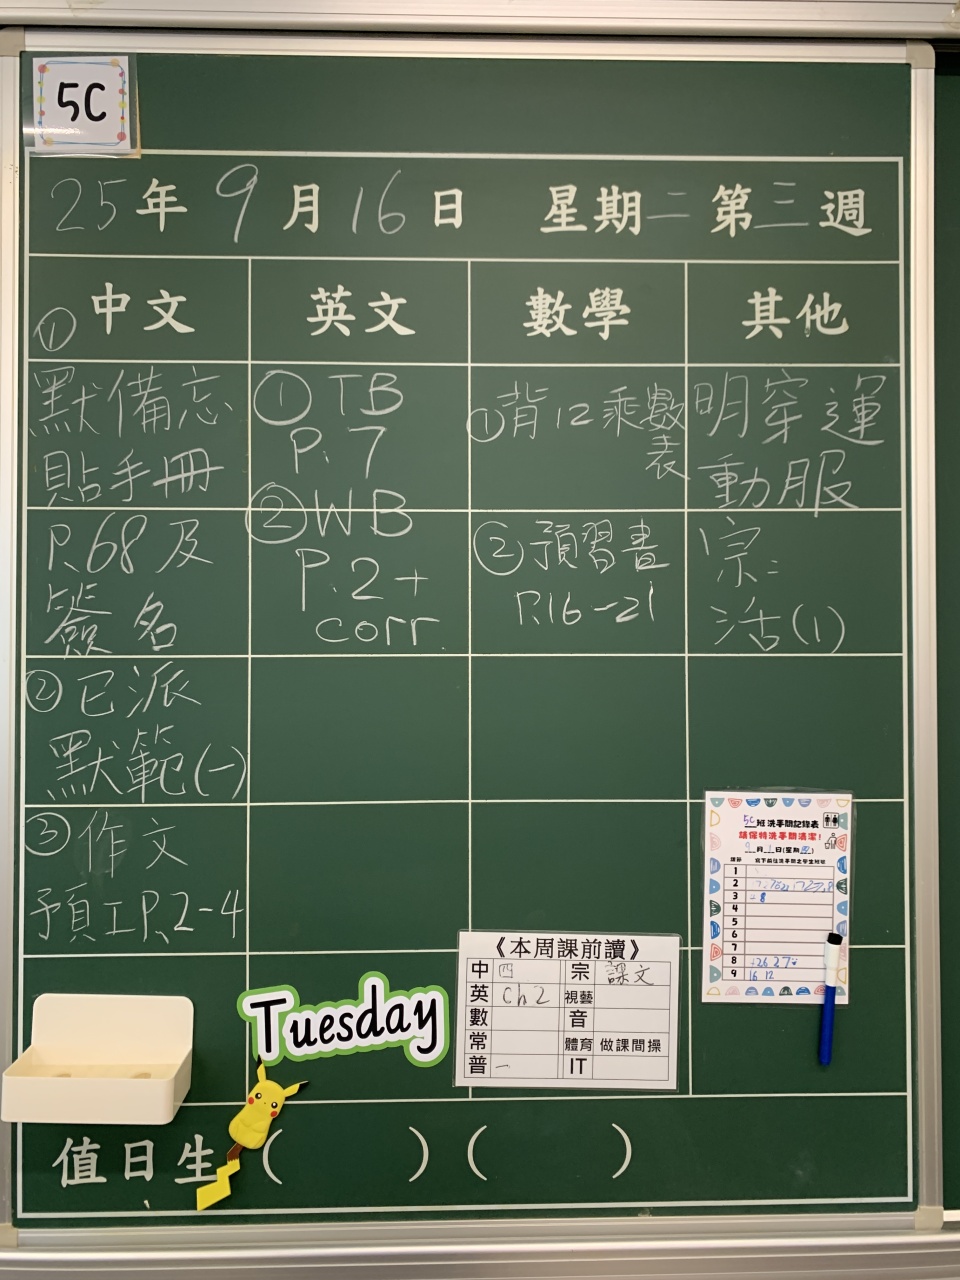 5C
25年9月16日 星期二第三週
①中文 英文 數學 其他
默備忘
貼手冊
P.68及
簽名
②已派
默範(一)
③作文
預工P.2-4
①TB
P.7
②WB
P.2+
corr.
①背12乘數
表
②預習書
P.16-21
明穿運
動服
宗:
活(1)
5C班洗手間記錄表
請保持洗手間清潔!
9月1日(星期四)
課節 寫下前往洗手間之學生班號
1
2
3
4
5
6
7
8 26 27
9 16 12
《本周課前讀》
中 四 宗 課文
英 ch2 視藝
數 音
常 體育 做課間操
普 一 IT
Tuesday
值日生( )( )